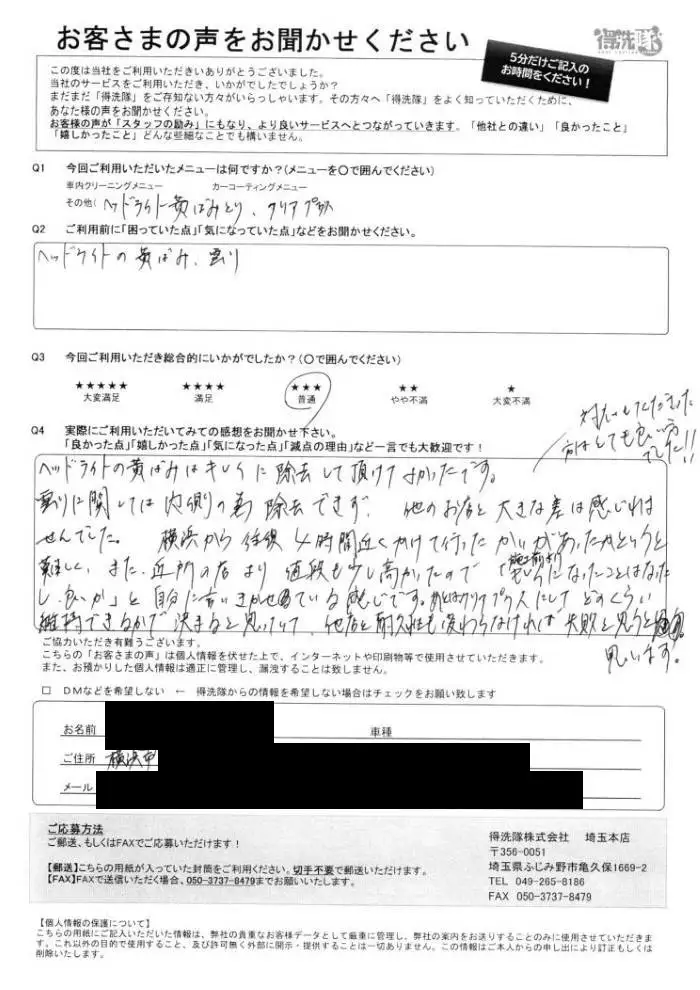 お客さまの声をお聞かせください
得洗隊
5分だけご記入の
お時間をください!
この度は当社をご利用いただきいありがとうございました。
当社のサービスをご利用いただき、いかがでしたでしょうか?
まだまだ「得洗隊」をご存知ない方々がいらっしゃいます。その方々へ「得洗隊」をよく知っていただくために、
あなた様の声をお聞かせください。
お客様の声が「スタッフの励み」にもなり、より良いサービスへとつながっていきます。「他社との違い」「良かったこと」
「嬉しかったこと」どんな些細なことでも構いません。
Q1 今回ご利用いただいたメニューは何ですか?(メニューを〇で囲んでください)
車内クリーニングメニュー カーコーティングメニュー
その他( ヘッドライト黄ばみとり、クリアプラス
Q2 ご利用前に「困っていた点」「気になっていた点」などをお聞かせください。
ヘッドライトの黄ばみ、曇り
Q3 今回ご利用いただき総合的にいかがでしたか?(〇で囲んでください)
★★★★★ ★★★★ ★★★ ★★ ★
大変満足 満足 普通 やや不満 大変不満
対応してくださった
方はとても良い方
でした!!
Q4 実際にご利用いただいてみての感想をお聞かせ下さい。
「良かった点」「嬉しかった点」「気になった点」「減点の理由」など一言でも大歓迎です!
ヘッドライトの黄ばみはキレイに除去して頂けてよかったです。
曇りに関しては内側の為除去できず、他のお店と大きな差は感じれま
せんでした。横浜から往復4時間近くかけて行ったかいがあったかというと
難しく、また、近所の店より値段も少し高かったので「施工前よりキレイになったことはなった
し、良いか」と自分に言いきかせている感じです。あとはクリアプラスにしてどのくらい
維持できるかで決まると思っていて、他店と耐久性も変わらなければ失敗と思うと
思います。
ご協力いただき有難うございます。
こちらの「お客さまの声」は個人情報を伏せた上で、インターネットや印刷物等で使用させていただきます。
また、お預かりした個人情報は適正に管理し、漏洩することは致しません。
□ DMなどを希望しない ← 得洗隊からの情報を希望しない場合はチェックをお願い致します
お名前 車種
ご住所 横浜市
メール
ご応募方法
ご郵送、もしくはFAXでご応募いただけます!
【郵送】こちらの用紙が入っていた封筒をご利用ください。切手不要で郵送いただけます。
【FAX】FAXで送信いただく場合、050-3737-8479までお願いいたします。
得洗隊株式会社 埼玉本店
〒356-0051
埼玉県ふじみ野市亀久保1669-2
TEL 049-265-8186
FAX 050-3737-8479
【個人情報の保護について】
こちらの用紙にご記入いただいた情報は、弊社の貴重なお客様データとして厳重に管理し、弊社の案内をお送りすることのみに使用させていただきま
す。これ以外の目的で使用すること、及び許可無く外部に開示・提供することは一切ありません。この情報はご本人からの申し出により訂正もしくは
削除いたします。